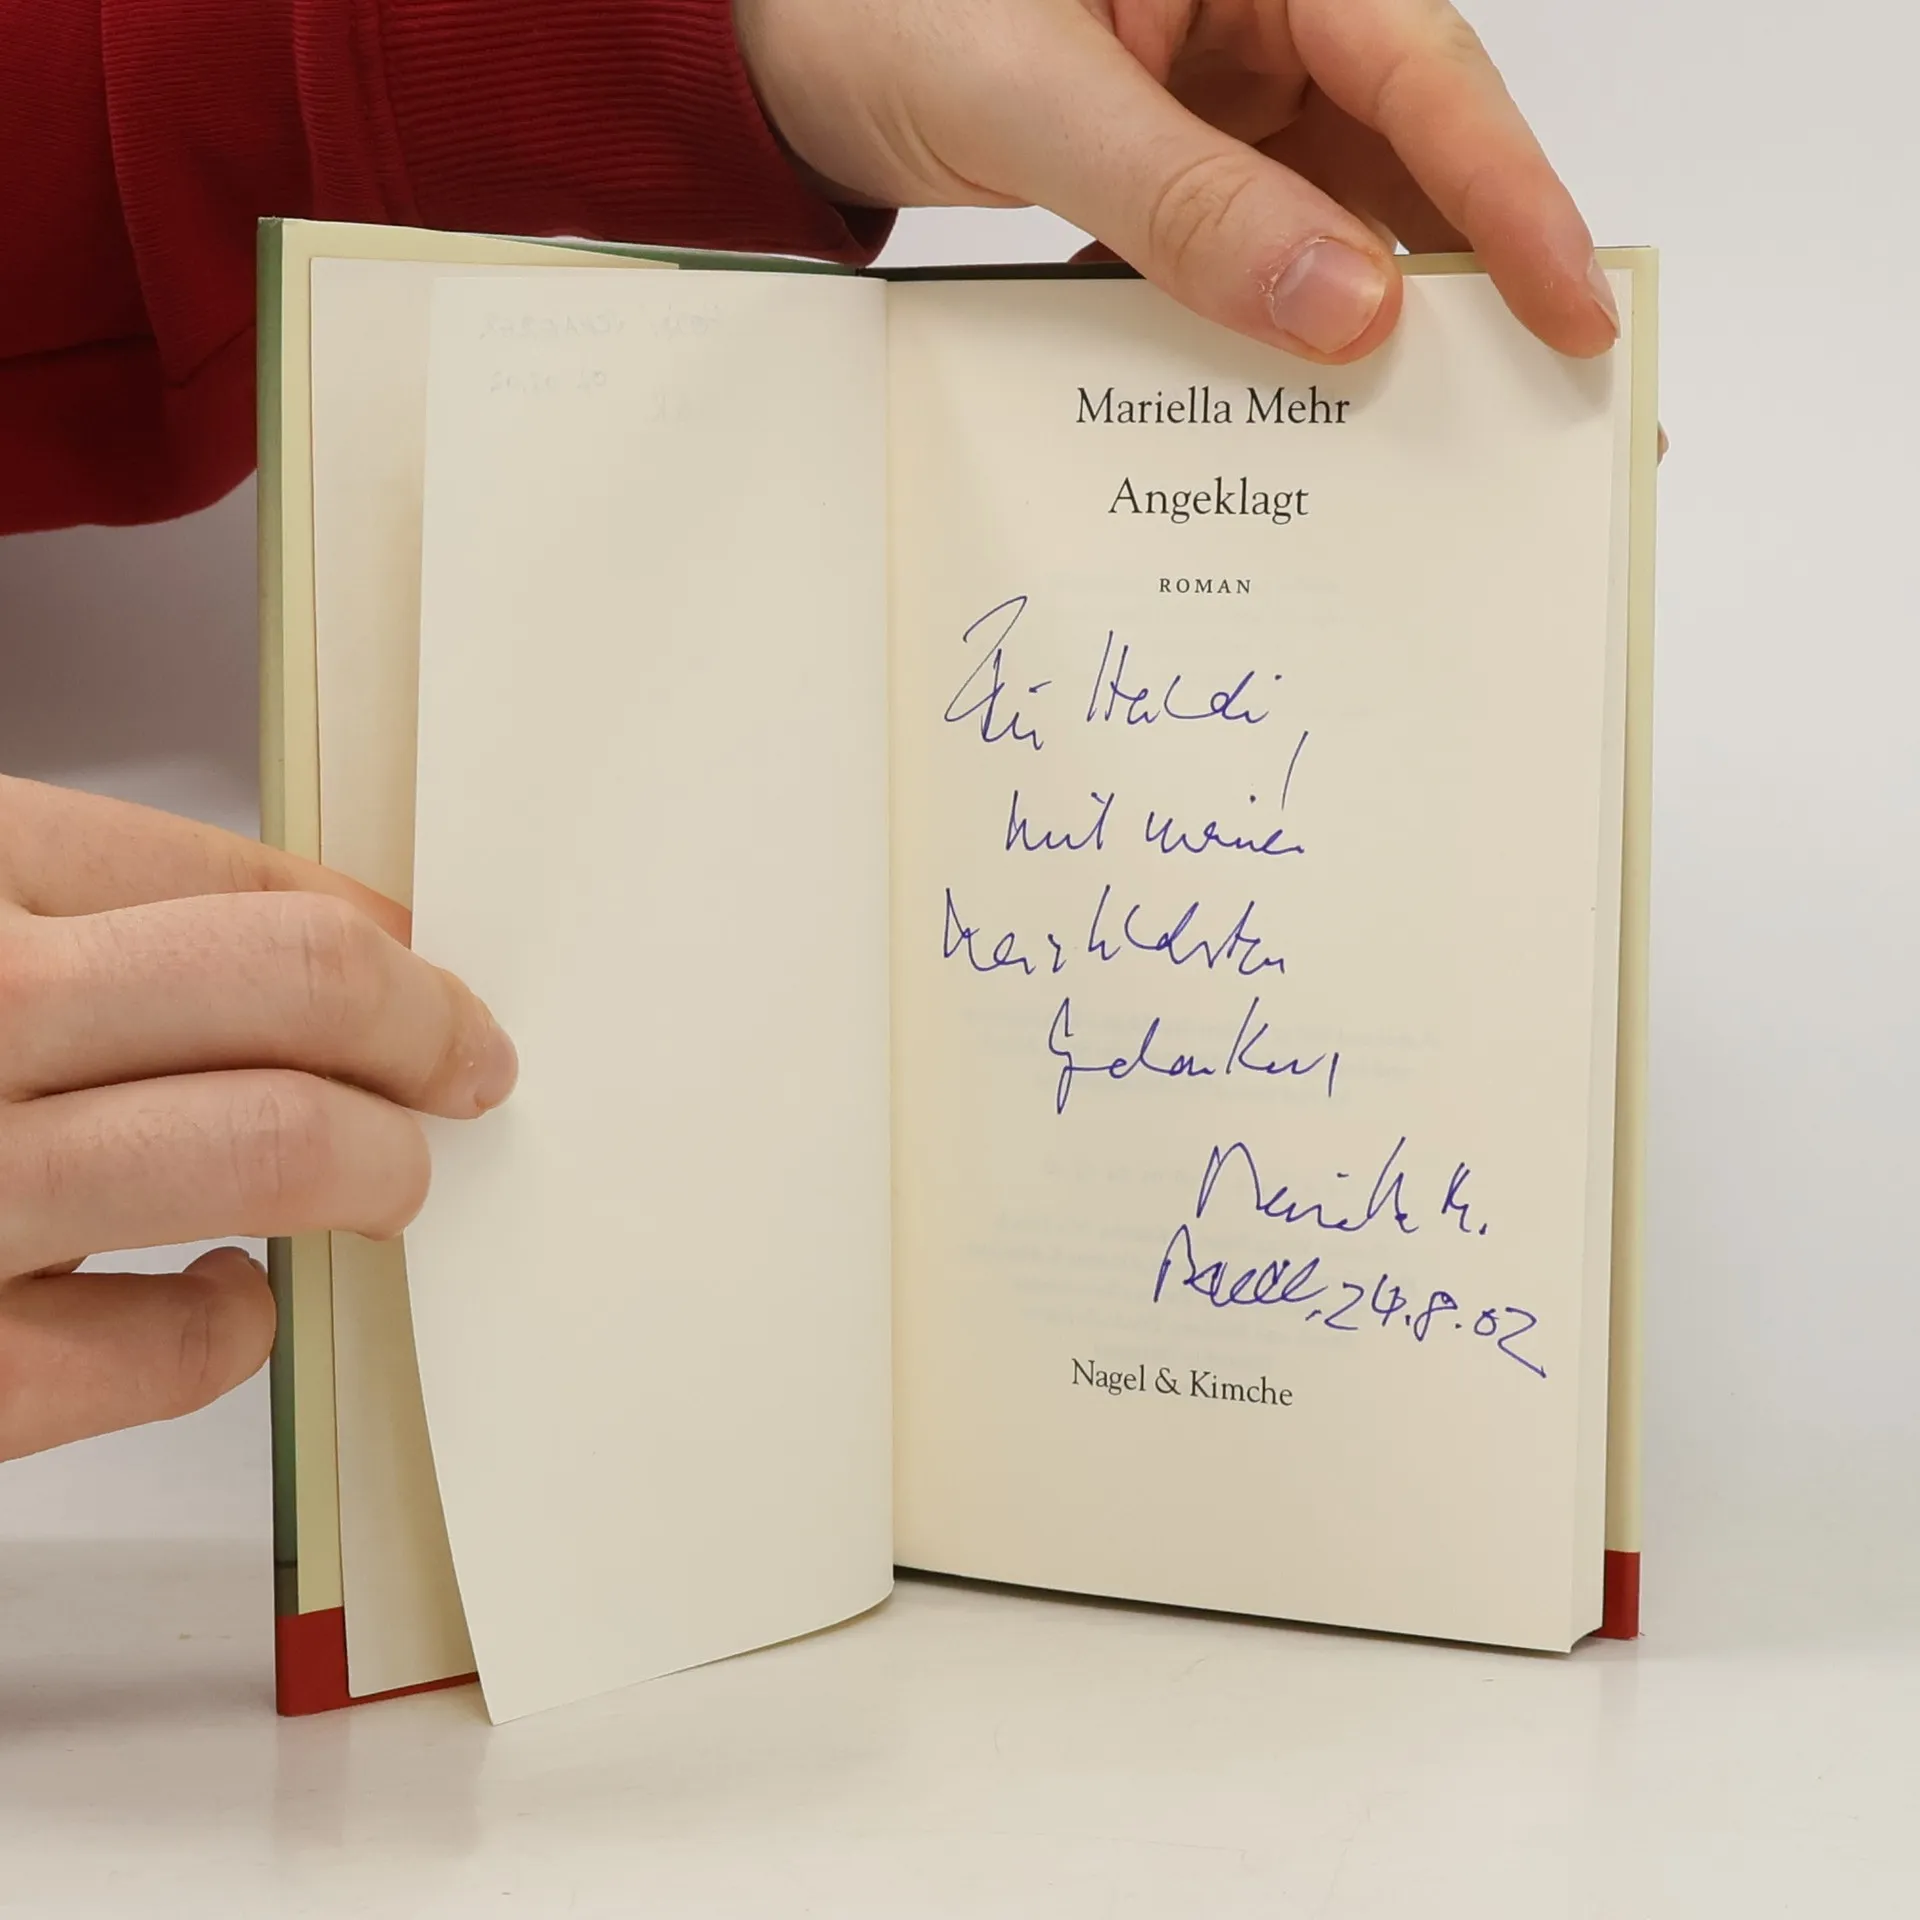 Mariella Mehr
Angeklagt
ROMAN
Für Heidi,
mit meinen
herzlichsten
Gedanken,
Mariella M.
24.8.02
Nagel & Kimche